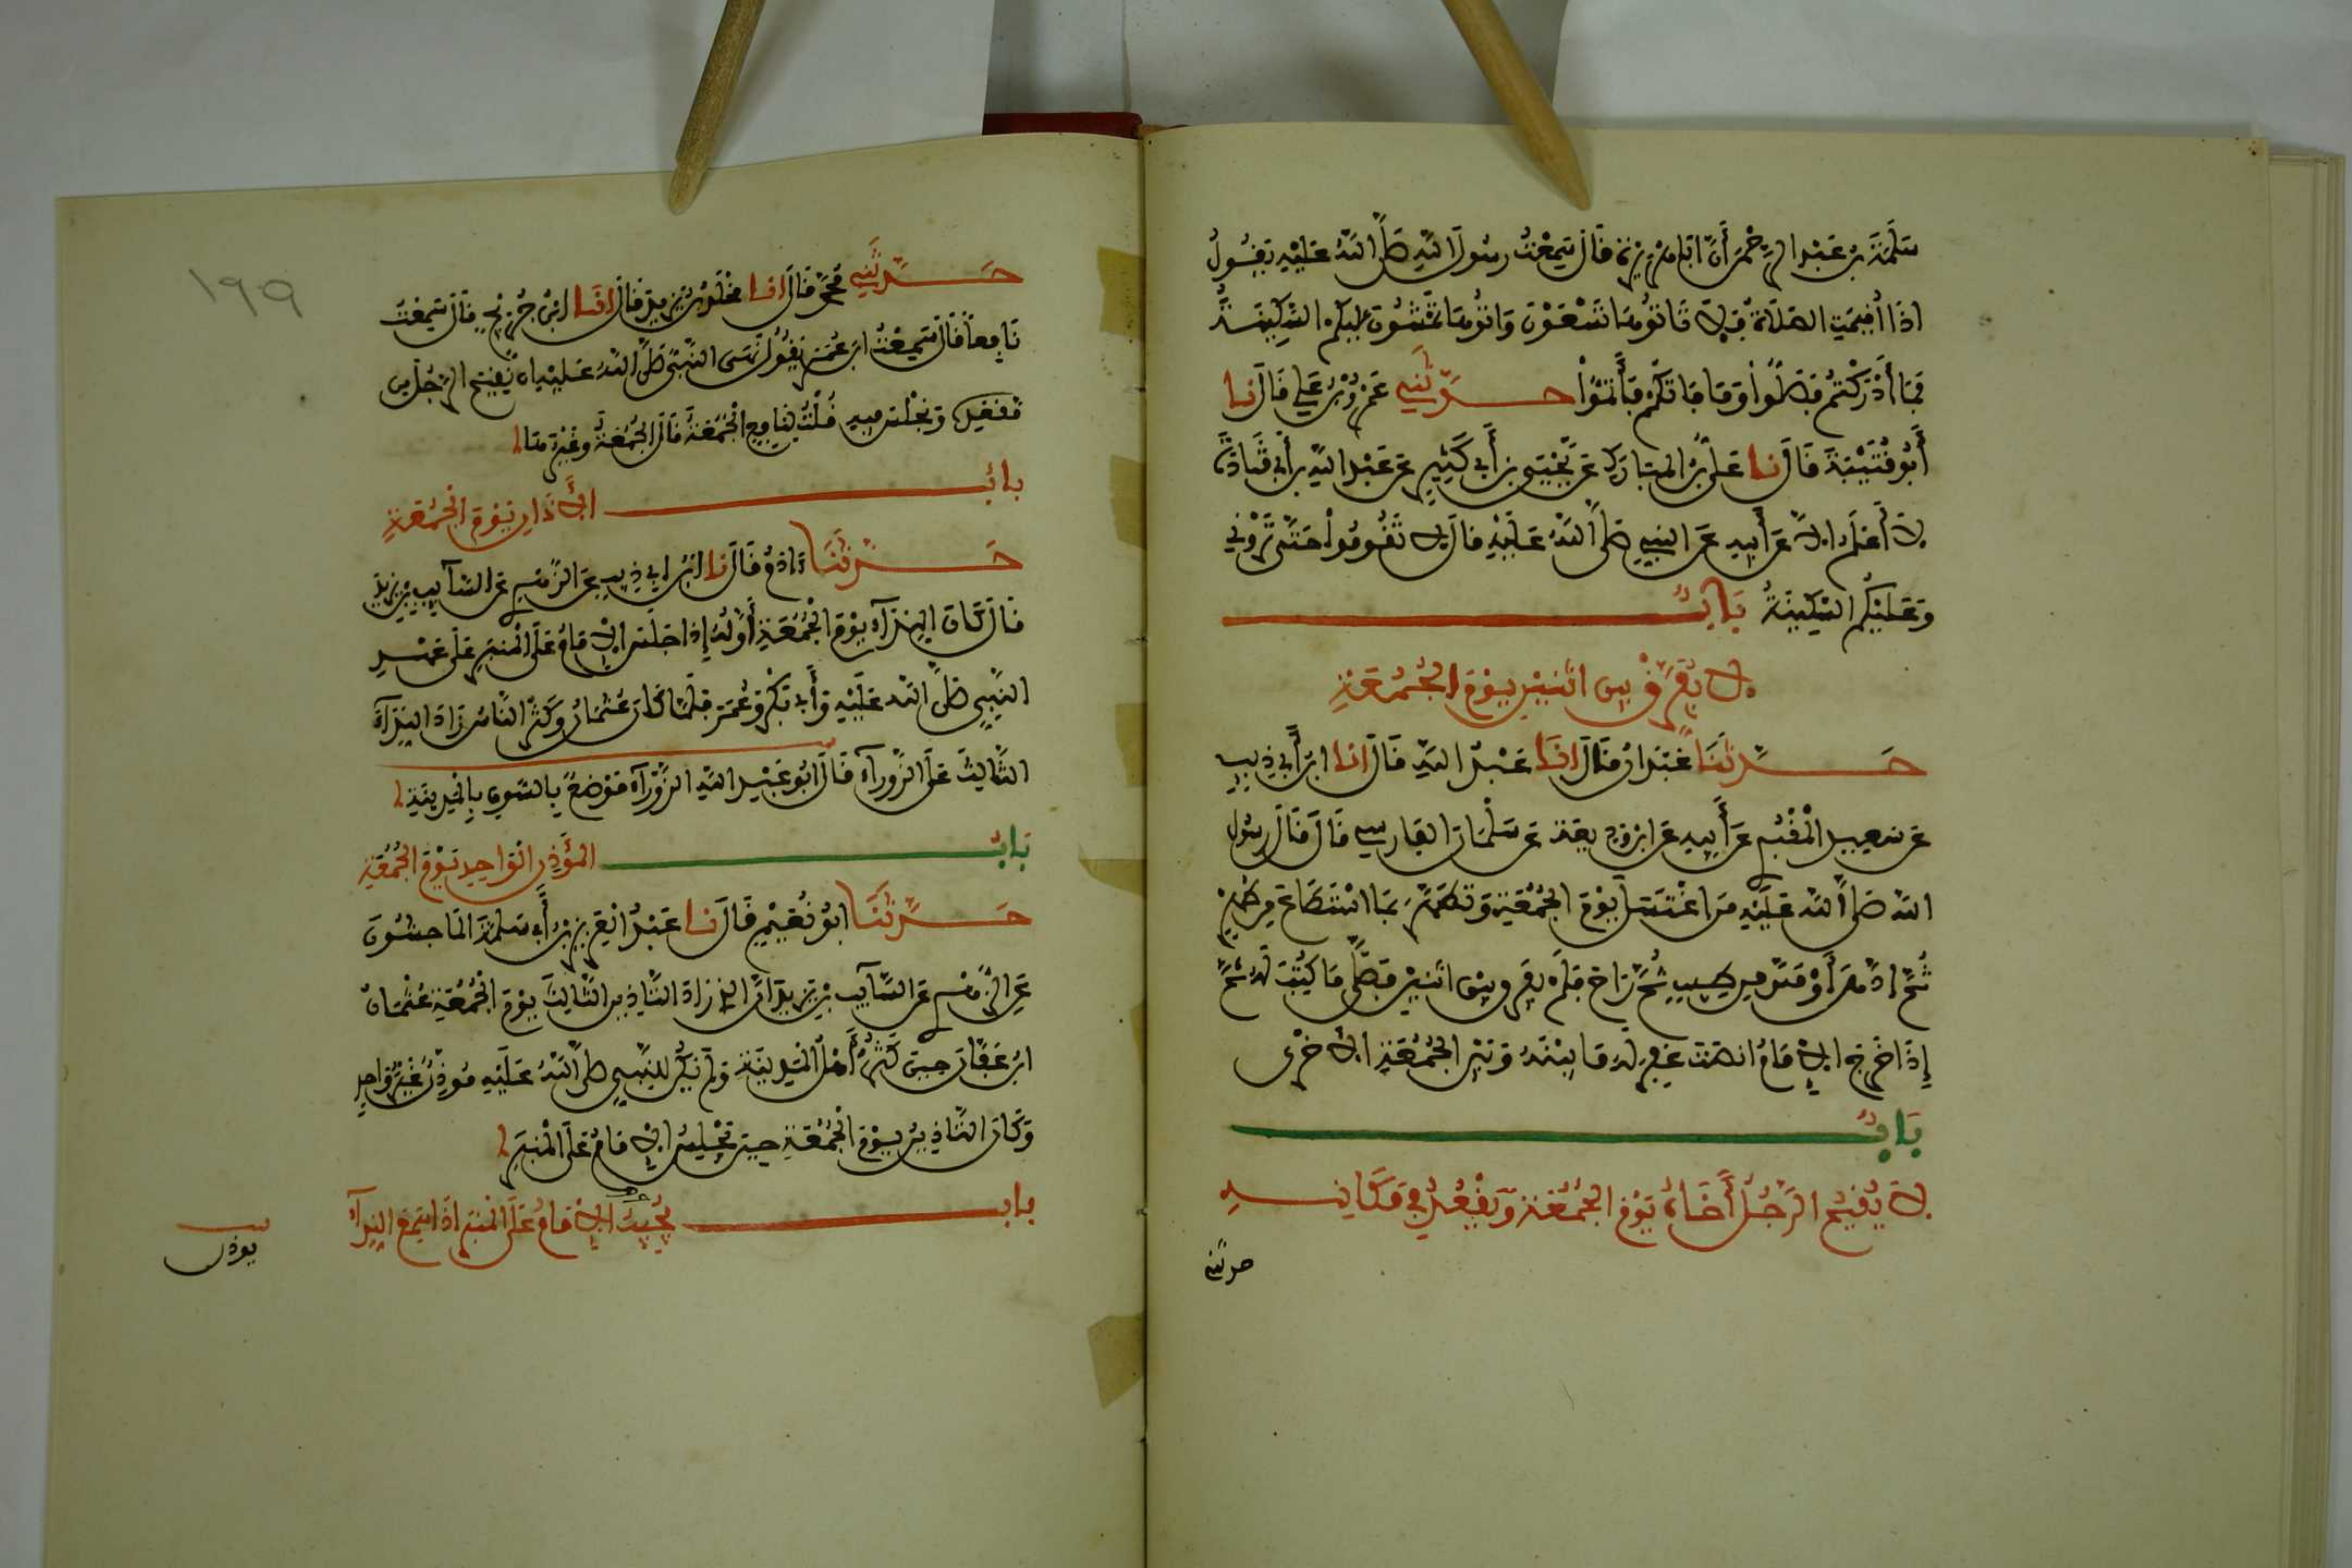 سَلَمَةَ بْن عَبْدِ الرَّحْمَن أَنَّ أَبَا هُرَيْرَةَ قَالَ سَمِعْتُ رسُولَ اللهِ صَلَّى اللهُ عَلَيْهِ يَقُولُ
إِذَا أُقِيمَتِ الصَّلَاةُ فَلَا تَاتُوهَا تَسْعَوْنَ وَاتُوهَا تَمْشُونَ عليْكم السَّكِينَةُ
فَمَا أَدْرَكْتُمْ فَصَلُّوا وَمَا فَاتَكُمْ فَأَتِمُّوا حَدَّثَنِي عَمْرُو بْنُ عَلِي قَالَ نا
أَبُو قُتَيْبَةَ قَالَ نا عَلِيُّ بْنُ المبَارَك عَنْ يَحْيَى بْنِ أَبِي كَثِيرٍ عَنْ عَبْدِ اللهِ بْنِ أَبِي قَتَادَةَ
لَا أَعْلَمُه إِلَّا عَنْ أَبِيهِ عَنِ النبي صَلَّى اللهُ عَلَيْهِ قالَ لَا تَقُومُوا حَتَّى تَرَوْنِي
وَعَلَيْكُم السَّكِينَةُ بَابٌ
لَا يُفَرَّقُ بين اثْنَيْنِ يَوْمَ الْجُمُعَةِ
حَدَّثَنَا عَبْدَانُ قَالَ انَا عَبْدُ اللهِ قَالَ انا ابْنُ أَبِي ذِيبٍ
عَنْ سَعِيدٍ الْمَقْبُرِي عَنْ أَبِيهِ عَنِ ابْنِ وَدِيعَةَ عَنْ سَلْمَانَ الفَارسِي قَالَ قَالَ رسُول
الله صَلَّى اللهُ عَلَيْهِ مَنِ اغْتَسَلَ يَوْمَ الْجُمُعَةِ وَتَطَهَّرَ بِمَا اسْتَطَاعَ مِن طُهْرٍ
ثُمَّ ادَّهَنَ أَوْ مَسَّ مِن طِيبٍ ثُمَّ رَاحَ فَلَمْ يُفَرِّق بَيْنَ اثْنَيْنِ فَصَلَّى مَا كُتِبَ لَهُ ثُمَّ
إِذَا خَرَجَ الإِمَامُ انصَتَ غُفِرَ لَهُ مَا بَيْنَهُ وَبَيْنَ الْجُمُعَةِ الأُخْرَى
بَابٌ
لَا يُقِيمُ الرَّجُلُ أَخَاهُ يَوْمَ الْجُمُعَةِ وَيَقْعُدُ فِي مَكَانِهِ
حدثني
١٩٩
حَدَّثَنِي مُحَمَّدٌ قَالَ انا مَخْلَدُ بْنُ يَزِيدَ قَالَ انَا ابْنُ جُرَيْجٍ قَالَ سَمِعْتُ
نَافِعاً قَالَ سَمِعْتُ ابْنَ عُمَرَ يَقُولُ نَهَى النَّبِيُّ صَلَّى اللهُ عَلَيْهِ أن يُقِيمَ الرَّجُلُ مِن
مَقْعَدِهِ وَيَجْلِسَ فِيهِ قُلْتُ لِنَافِعٍ الْجُمُعَةَ قَالَ الْجُمُعَةَ وغَيْرَهَا
بابُ الأَذَانِ يَوْمَ الْجُمُعَةِ
حَدَّثَنَا ءَادَمُ قَالَ نا ابْنُ أبِي ذِيبٍ عَنِ الزُّهْرِي عَنِ السَّآيِبِ بْنِ يَزِيدَ
قَالَ كَانَ النِّدَآءُ يَوْمَ الْجُمُعَةِ أَوَّلُهُ إِذَا جَلَسَ الإِمَامُ عَلَى الْمِنْبَرِ عَلَى عَهْدِ
النَّبِيِّ صَلَّى اللهُ عَلَيْهِ وَأَبِي بَكْرٍ وَعُمَرَ فَلَمَّا كَانَ عُثْمَانُ وَكَثُرَ النَّاسُ زَادَ النِّدَآءَ
الثَّالِثَ عَلَى الزَّوْرَآءِ قَالَ أبُو عَبْدِ اللهِ الزَّوْرَآءُ مَوْضِعٌ بِالسُّوقِ بِالْمَدِينَةِ
بَابُ المُؤَذِّنِ الْوَاحِدِ يَوْمَ الْجُمُعَةِ
حَدَّثَنَا أبُو نُعَيْمٍ قَالَ نا عَبْدُ الْعَزِيزِ بْنُ أَبِي سَلَمَةَ الْمَاجِشُونَ
عَنِ الزُّهْرِي عَنِ السَّآيِبِ بْنِ يَزِيدَ أنَّ الذِي زَادَ التَّاذِينَ الثَّالِثَ يَوْمَ الْجُمُعَةِ عُثْمَانُ
ابْنُ عَفَّانَ حِينَ كَثُرَ أَهْلُ الْمَدِينَةِ وَلَمْ يَكُنْ لِلنَّبِيِّ صلَّى اللهُ عَلَيْهِ مُوَذِّنٌ غَيْرَ وَاحِدٍ
وَكَانَ التَّاذِينُ يَوْمَ الْجُمُعَةِ حِينَ يَجْلِسُ الإِمَامُ عَلَى الْمِنْبَرِ
بابٌ يُجِيبُ الإِمَامُ عَلَى الْمِنْبَرِ إِذَا سَمِعَ النِّدَآءَ
يوذن